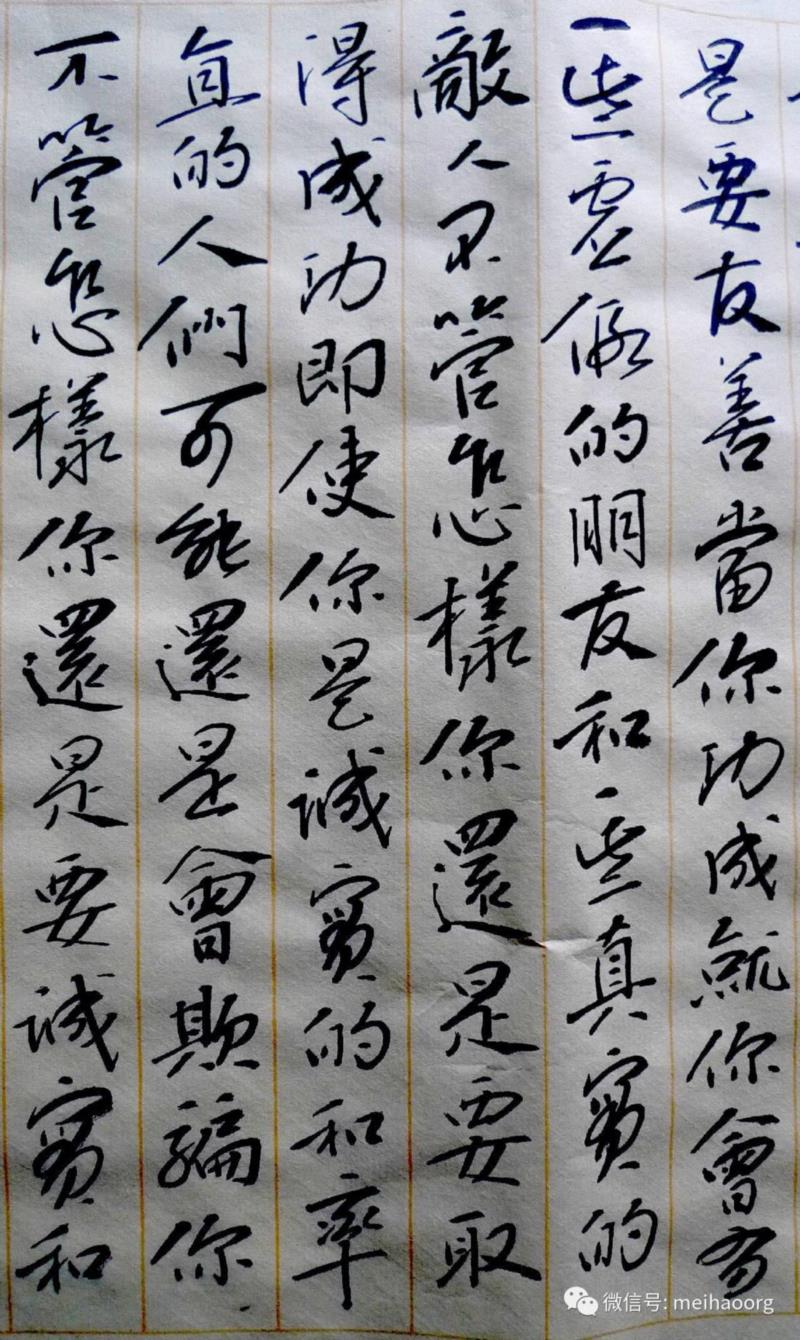 是要友善當你功成就你會有
一些虛假的朋友和一些真實的
敵人不管怎樣你還是要取
得成功即使你是誠實的和率
直的人們可能還是會欺騙你
不管怎樣你還是要誠實和
微信号: meihaoorg